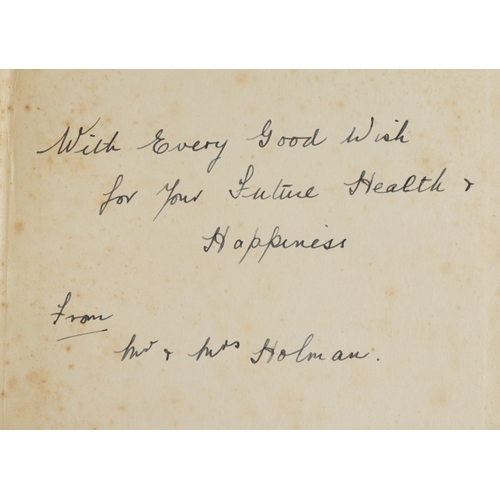 With Every Good Wish
for Your Future Health &
Happiness
From
Mr & Mrs Holman.